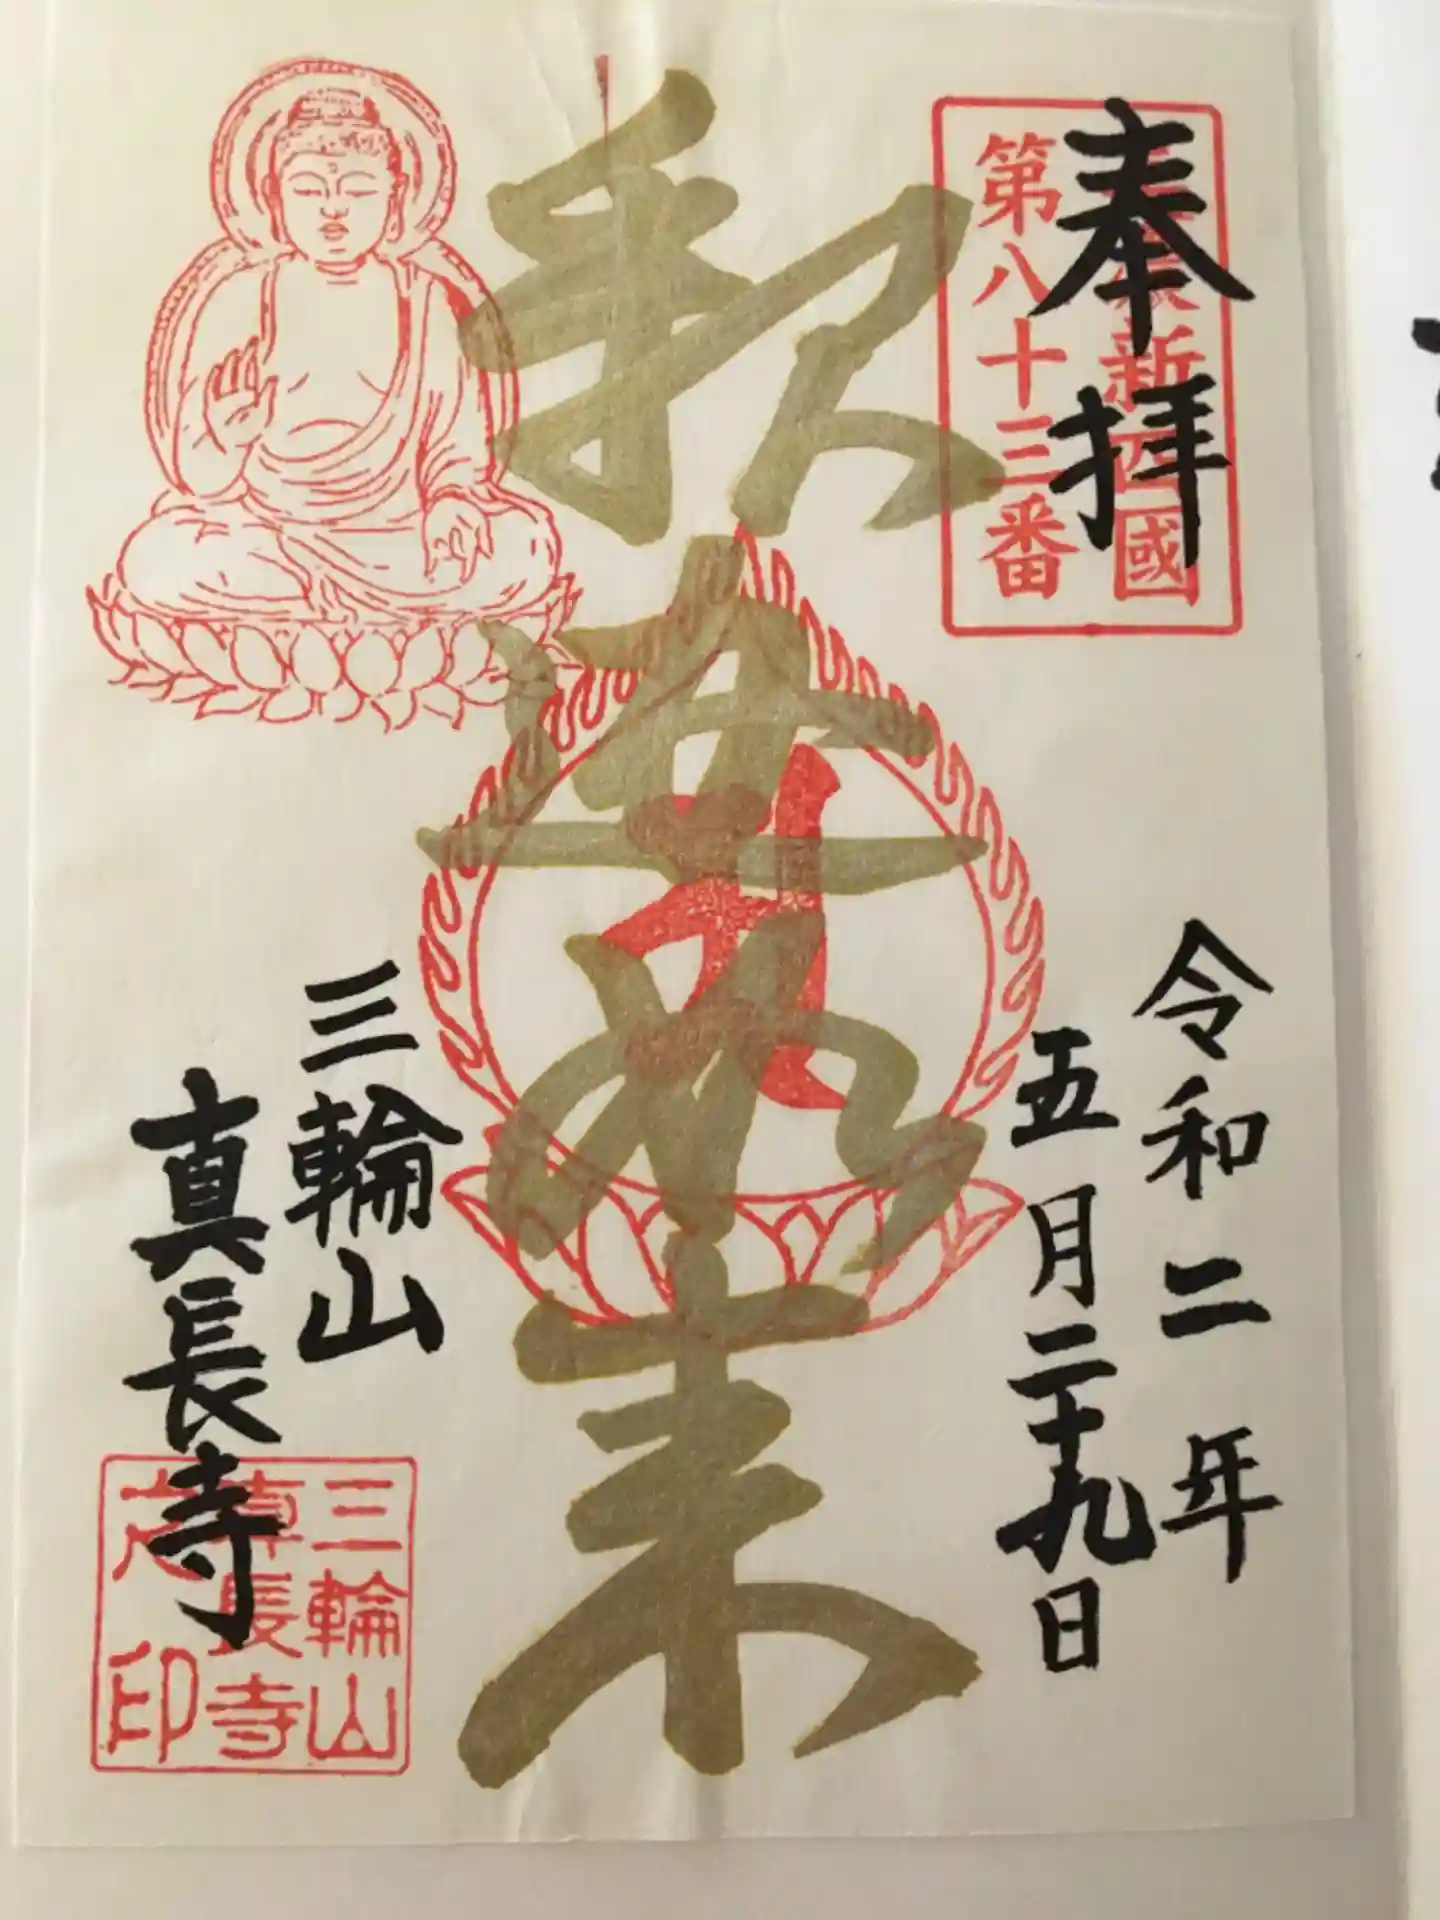 奉拝
新四國
第八十三番
令和二年
五月二十九日
釈迦如来
三輪山
真長寺
三輪山
真長寺
之印